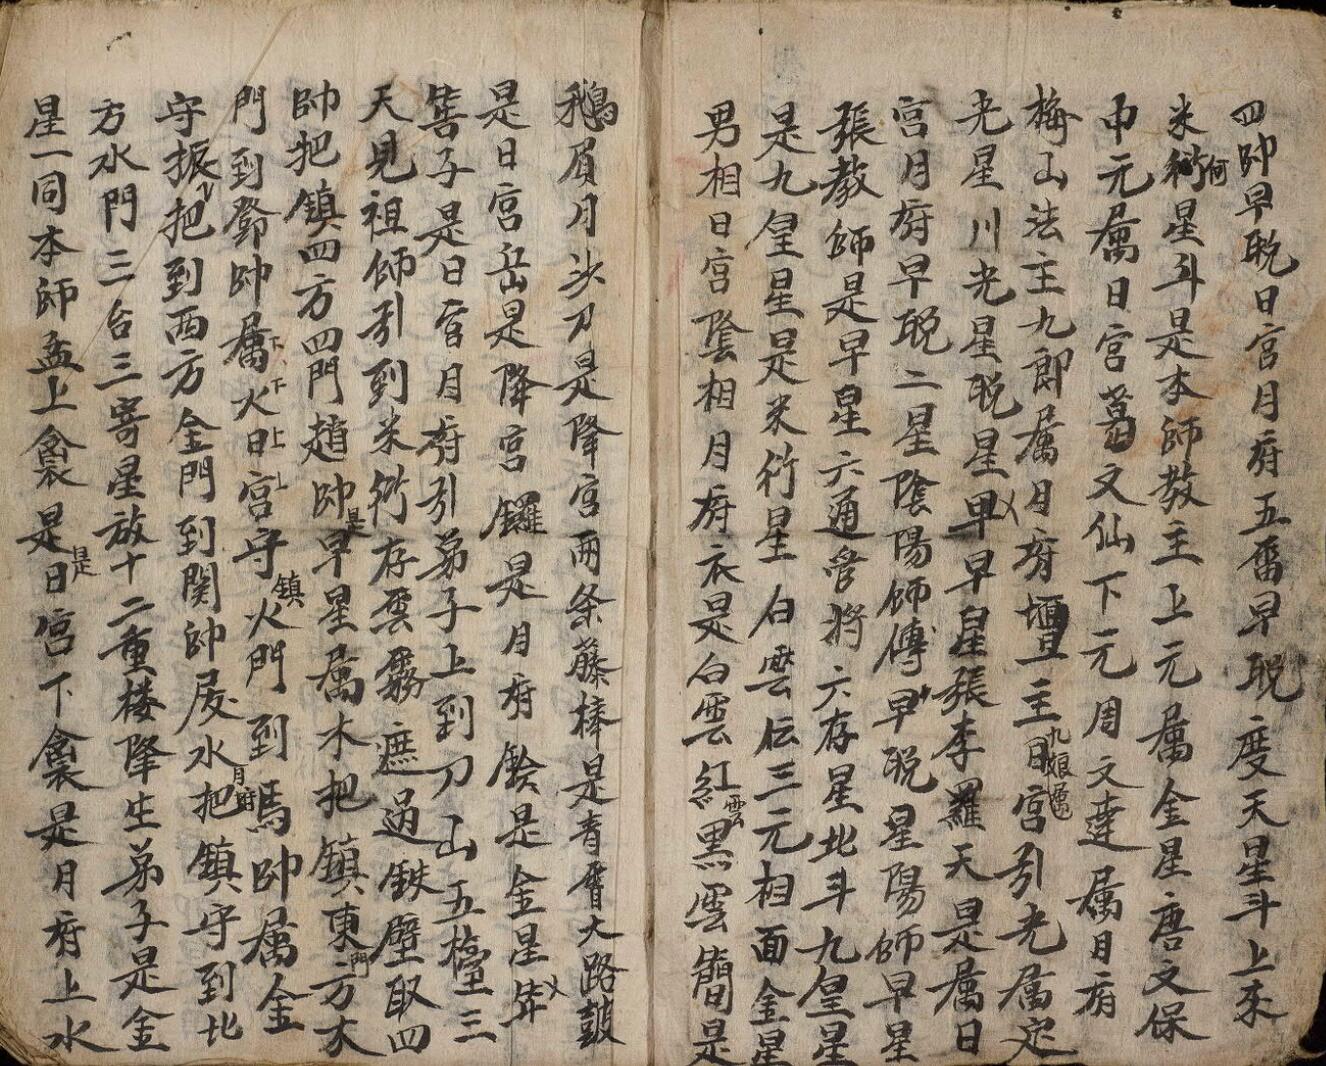 四帥早晩日宮月府五畨早晩度天星斗上來
米衕何星斗是本師教主上元属金星唐文保
中元属日宮葛文仙下元周文達属月府
梅山法主九郎属月府壇主日九娘属宮引光属定
光星川光星晩星早早星張李羅天是属日
宮月府早晩二星陰陽師傅早晩星陽師早星
張教師是早星六通管將六存星北斗九皇星
是九皇星是米衕星白雲伝三元相面金星
男相日宮陰相月府衣是白雲紅雲黒雲簡是
鵝眉月沙刀是降宮兩条藤棒是青大路鼓
是日宮岳是降宮鑼是月府鈴是金星笄
筶子是日宮月府引弟子上到刀山五檯三
天見祖師引到米衕存雲霧遮過鉄壁取四
帥把鎮四方四門趙帥是早星属木把鎮東門方木
門到鄧帥属火日宮守鎮火門到馬帥属金
守振把到西方金門到関帥属水把月府鎮守到北
方水門三台三寄星放十二重楼降生弟子是金
星一同本師盂上禽是是日宮下禽是月府上水